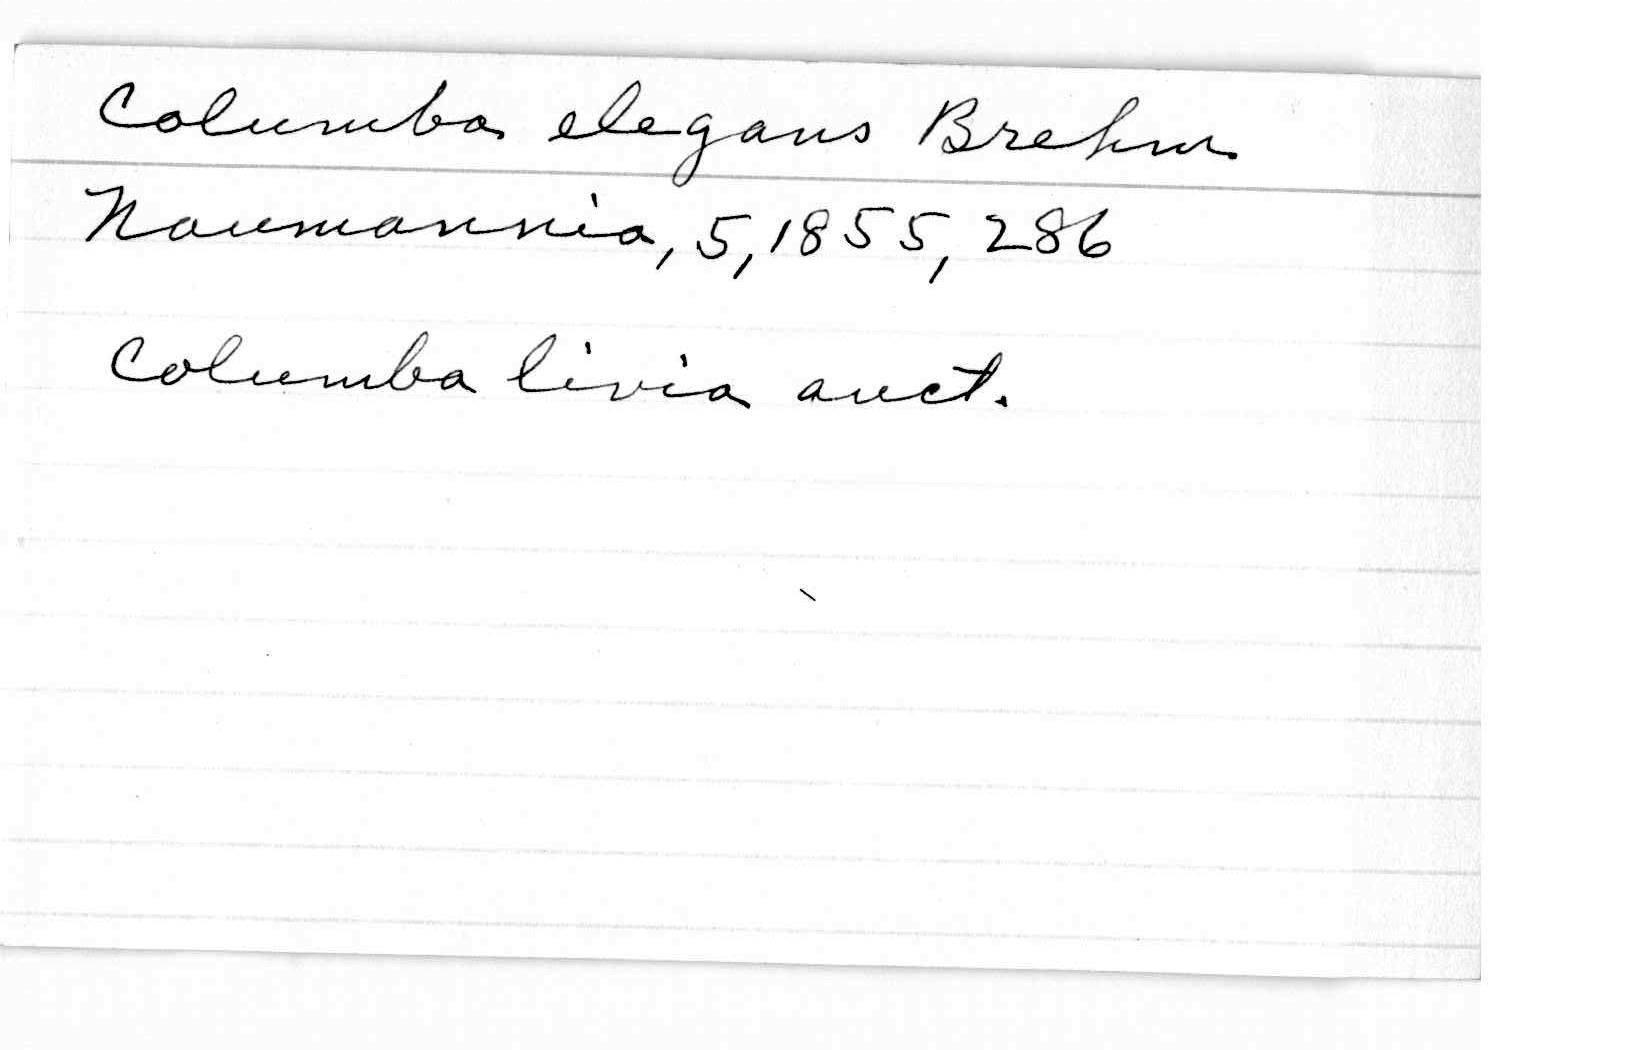 Columba elegans Brehm
Naumannia, 5, 1855, 286
Columba livia auct.